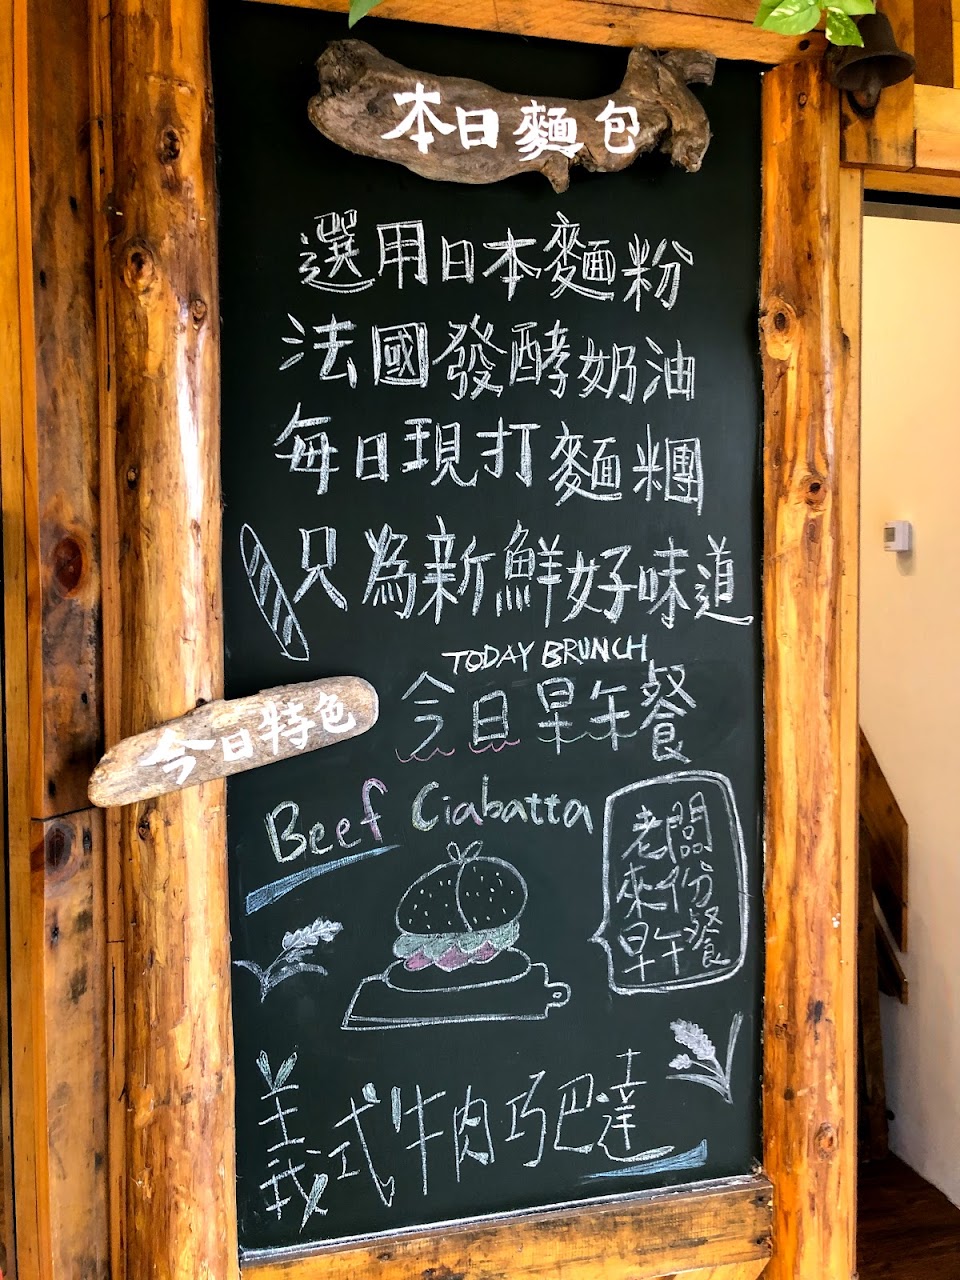 本日麵包
選用日本麵粉
法國發酵奶油
每日現打麵糰
只為新鮮好味道
TODAY BRUNCH
今日早午餐
今日特色
Beef Ciabatta
老闆
來份
早午餐
義式牛肉巧巴達